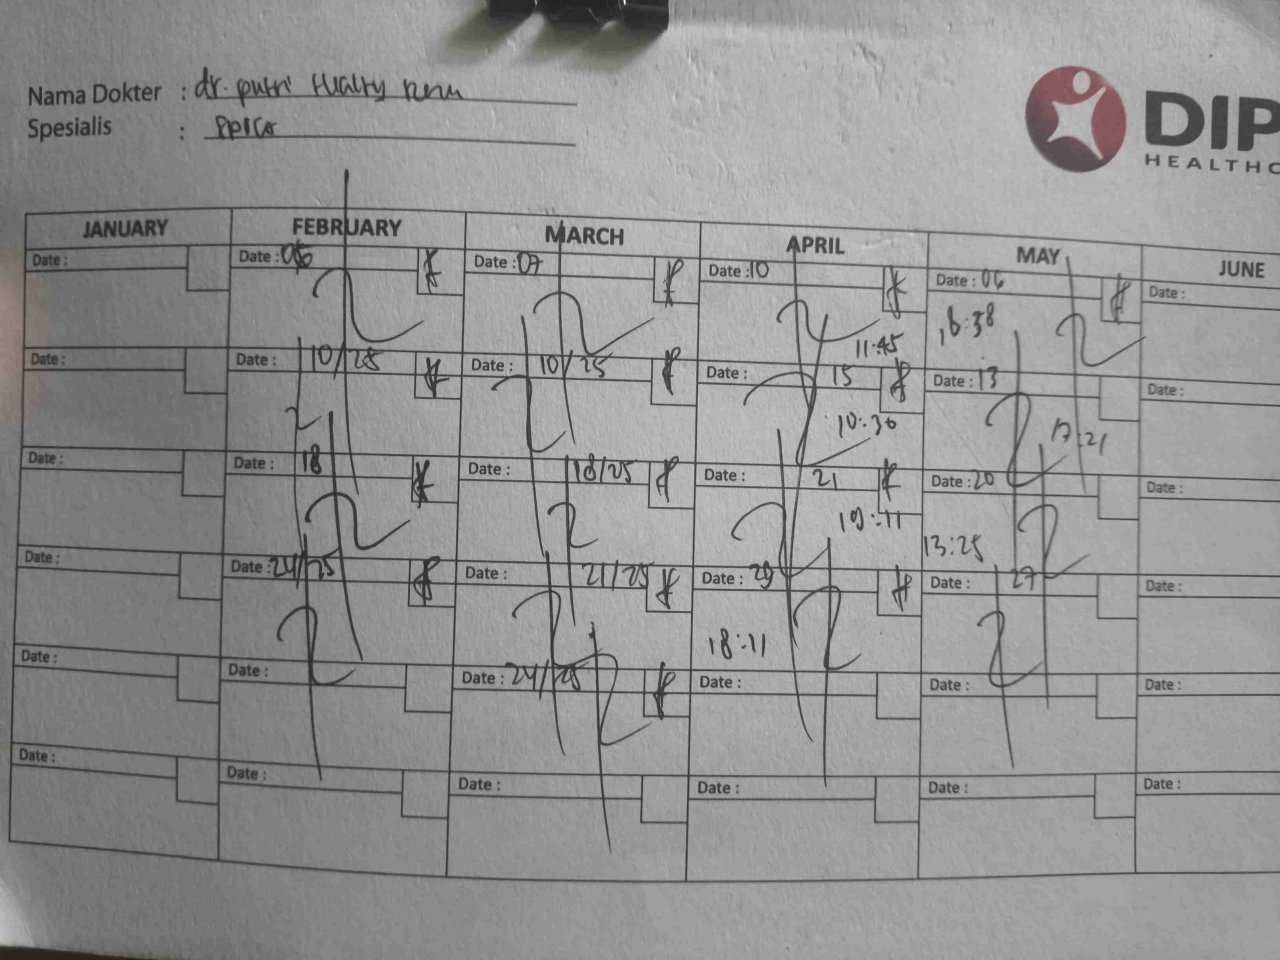 Nama Dokter : dr. putri
Spesialis :
DIP
HEALTHC
JANUARY FEBRUARY MARCH APRIL MAY JUNE
Date : Date : 06 Date : 07 Date : 10 Date : 06 Date :
11:45 16:38
Date : Date : 10/25 Date : 10/25 Date : 15 Date : 13 Date :
10:30 17:21
Date : Date : 18 Date : 18/25 Date : 21 Date : 20 Date :
19:11 13:25
Date : Date : 24/25 Date : 21/25 Date : 29 Date : 27 Date :
18:11
Date : Date : Date : 24/25 Date : Date : Date :
Date : Date : Date : Date : Date : Date :